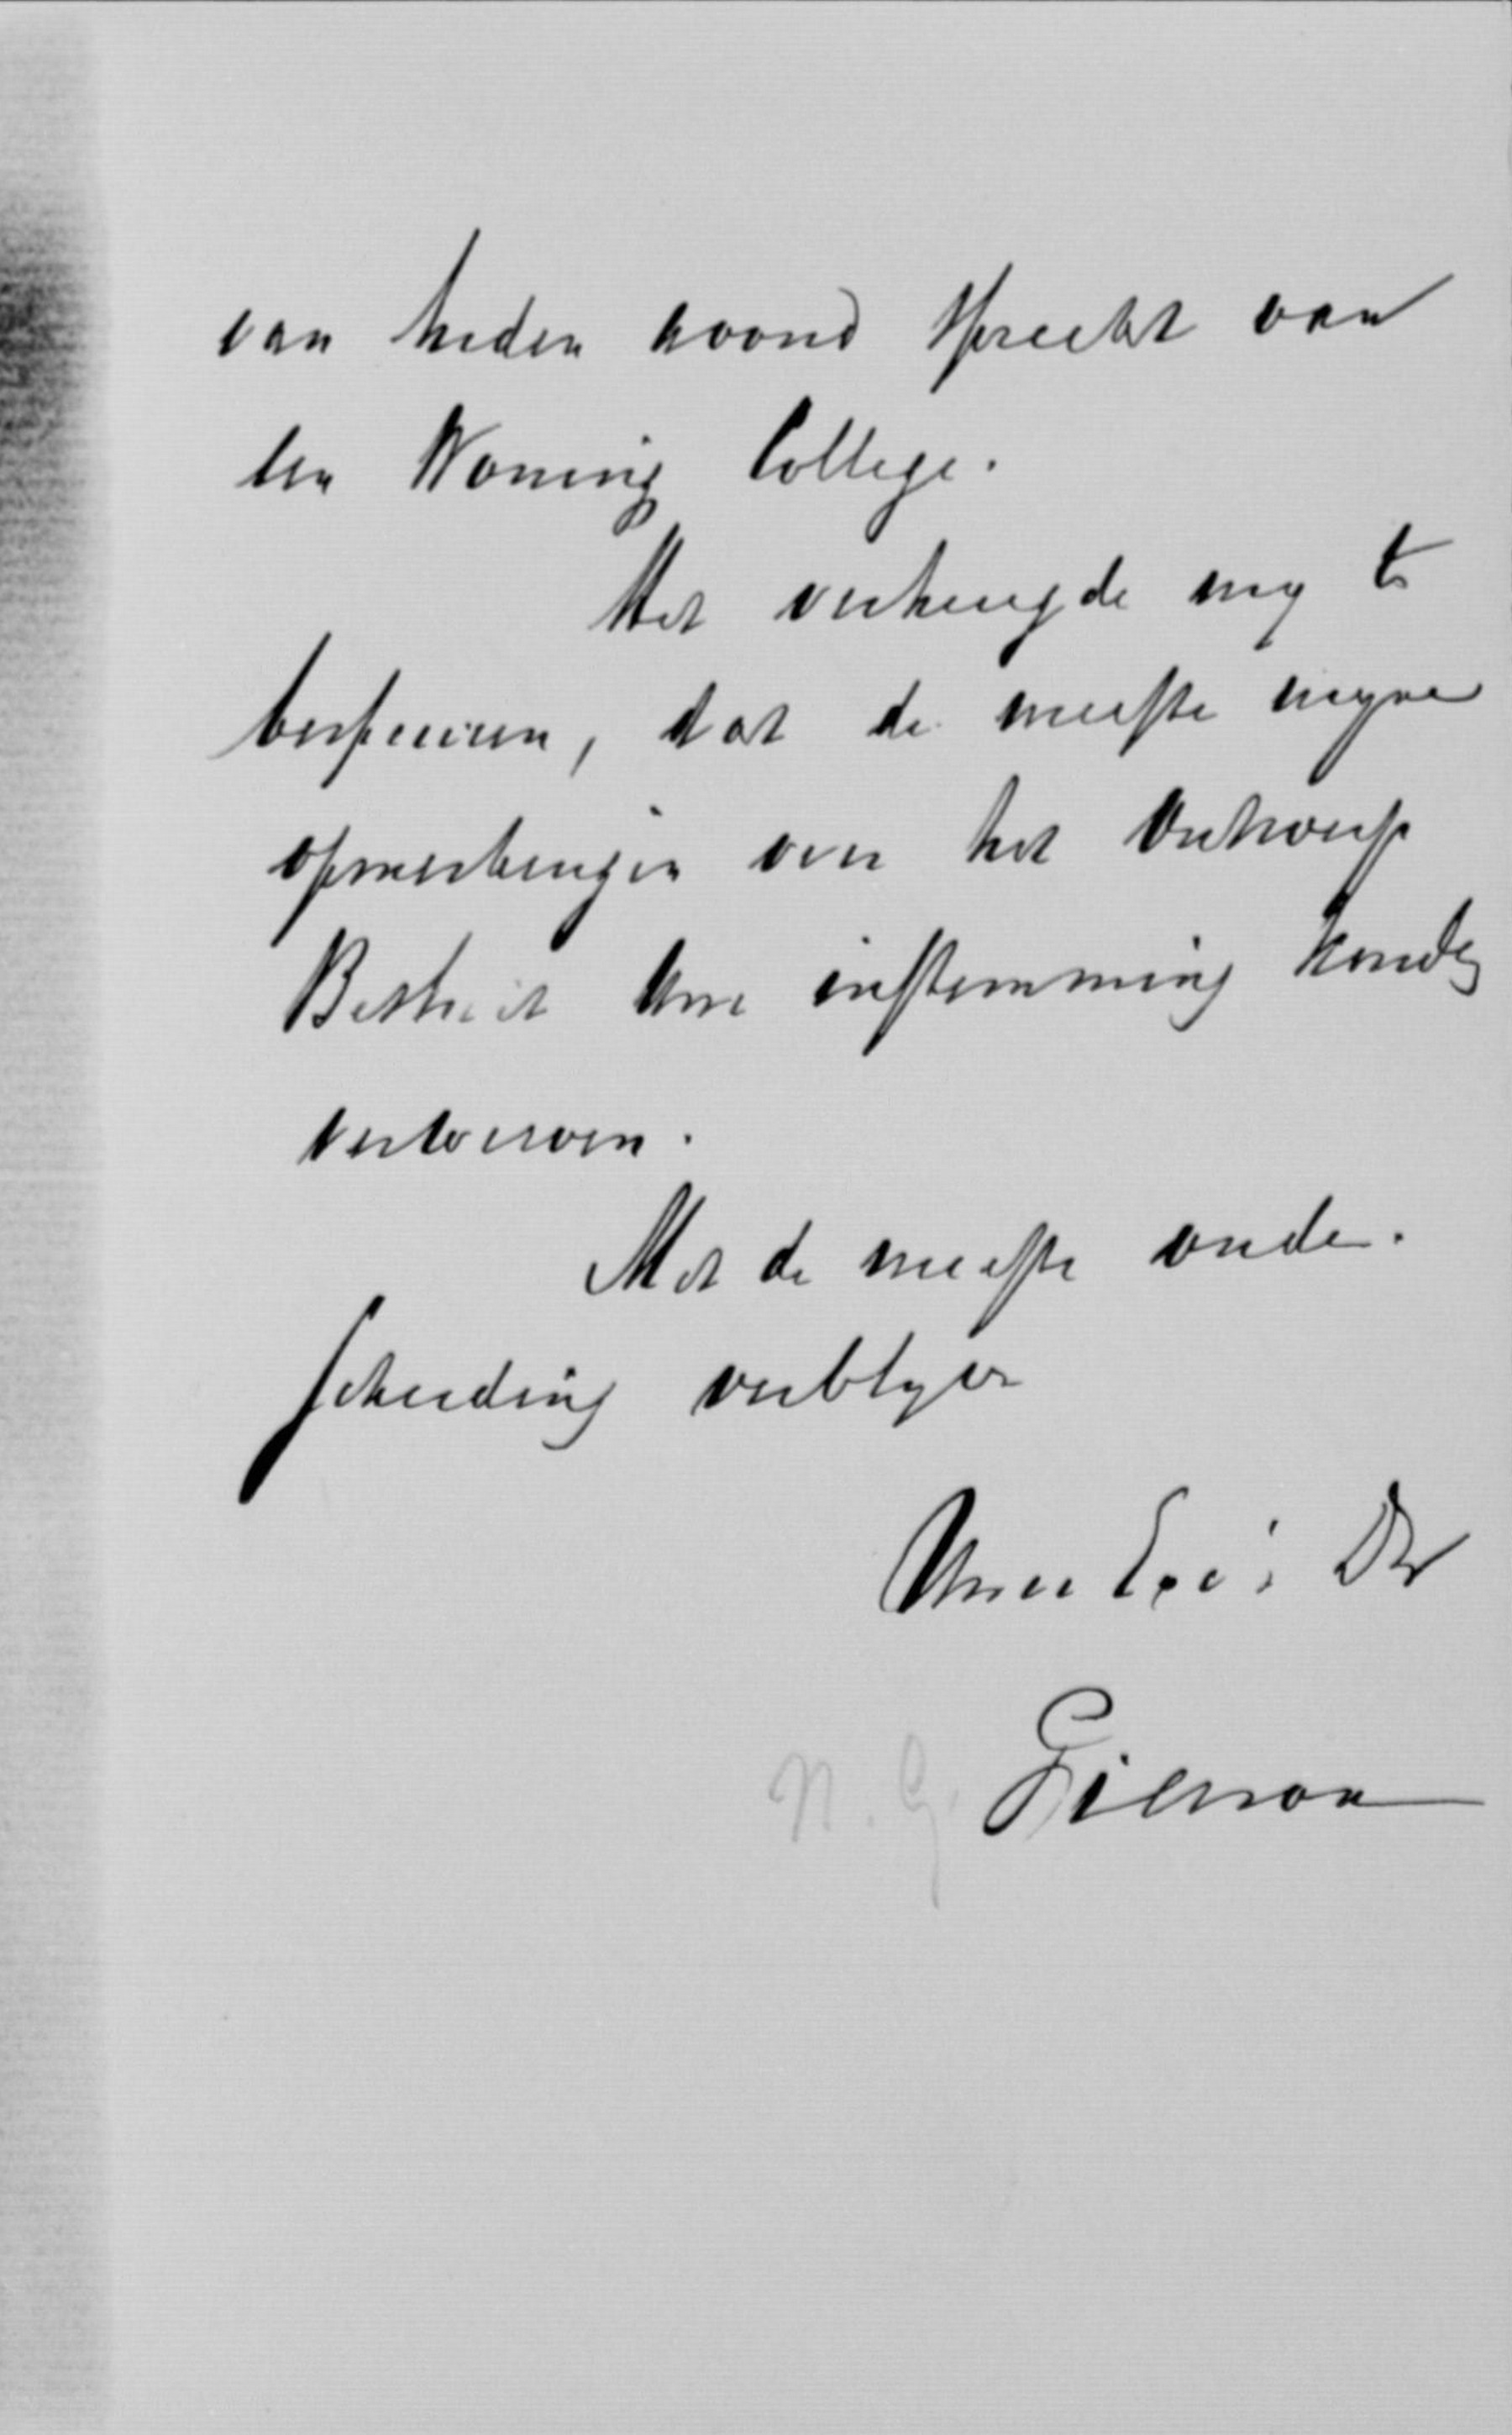 van heden avond spreekt van
een Woning College.
Het verheugde my te
bespeuren, dat de meeste mijner
opmerkingen over het Ontwerp
Besluit Uwe instemming konden
verwerven.
Met de meeste onder-
scheiding verblijve
Uwer Exc's Dr
N. G. Pierson